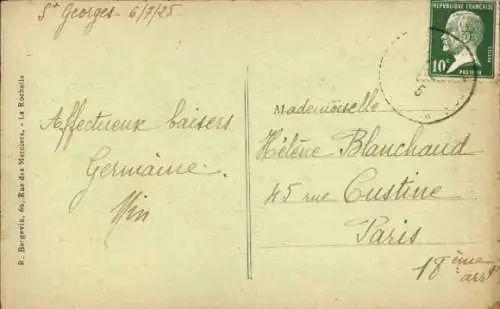 St Georges - 6/7/25
Affectueux baisers
Germaine.
R. Bergevin, 60, Rue des Merciers. - La Rochelle
REPUBLIQUE FRANÇAISE
10c
PASTEUR
Mademoiselle
Hélène Blanchaud
45 rue Custine
Paris
18ème
arrt